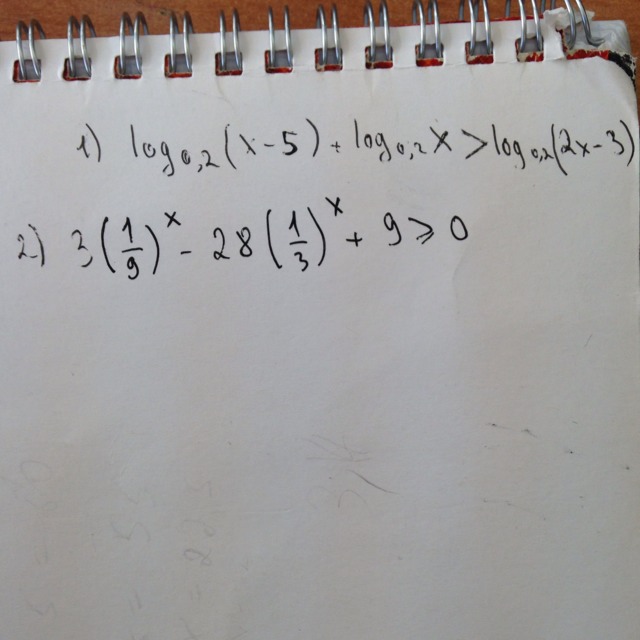 1) log₀,₂(x-5) + log₀,₂x > log₀,₂(2x-3)
2) 3(1/9)ˣ - 28(1/3)ˣ + 9 ⩾ 0